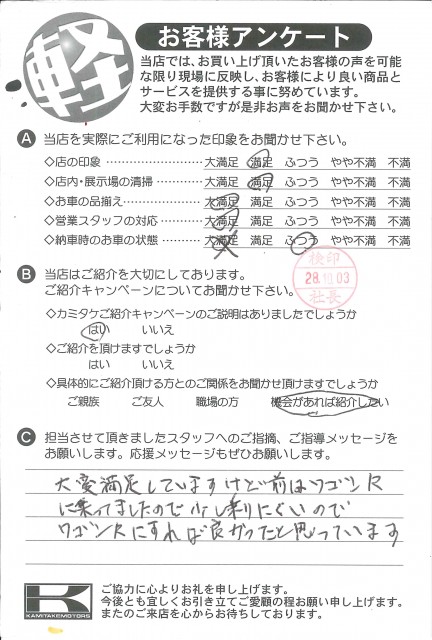 軽
お客様アンケート
当店では、お買い上げ頂いたお客様の声を可能
な限り現場に反映し、お客様により良い商品と
サービスを提供する事に努めています。
大変お手数ですが是非お声をお聞かせ下さい。
A 当店を実際にご利用になった印象をお聞かせ下さい。
◇店の印象 大満足 満足 ふつう やや不満 不満
◇店内・展示場の清掃 大満足 満足 ふつう やや不満 不満
◇お車の品揃え 大満足 満足 ふつう やや不満 不満
◇営業スタッフの対応 大満足 満足 ふつう やや不満 不満
◇納車時のお車の状態 大満足 満足 ふつう やや不満 不満
検印
28.10.03
社長
B 当店はご紹介を大切にしております。
ご紹介キャンペーンについてお聞かせ下さい。
◇カミタケご紹介キャンペーンのご説明はありましたでしょうか
はい いいえ
◇ご紹介を頂けますでしょうか
はい いいえ
◇具体的にご紹介頂ける方とのご関係をお聞かせ頂けますでしょうか
ご親族 ご友人 職場の方 機会があれば紹介したい
C 担当させて頂きましたスタッフへのご指摘、ご指導メッセージを
お願いします。応援メッセージもぜひお願いします。
大変満足していますけど前はワゴンR
に乗ってましたので少し乗りにくいので
ワゴンRにすれば良かったと思っています
K
KAMITAKEMOTORS
ご協力に心よりお礼を申し上げます。
今後とも宜しくお引き立てご愛顧の程お願い申し上げます。
またのご来店を心からお待ちしております。